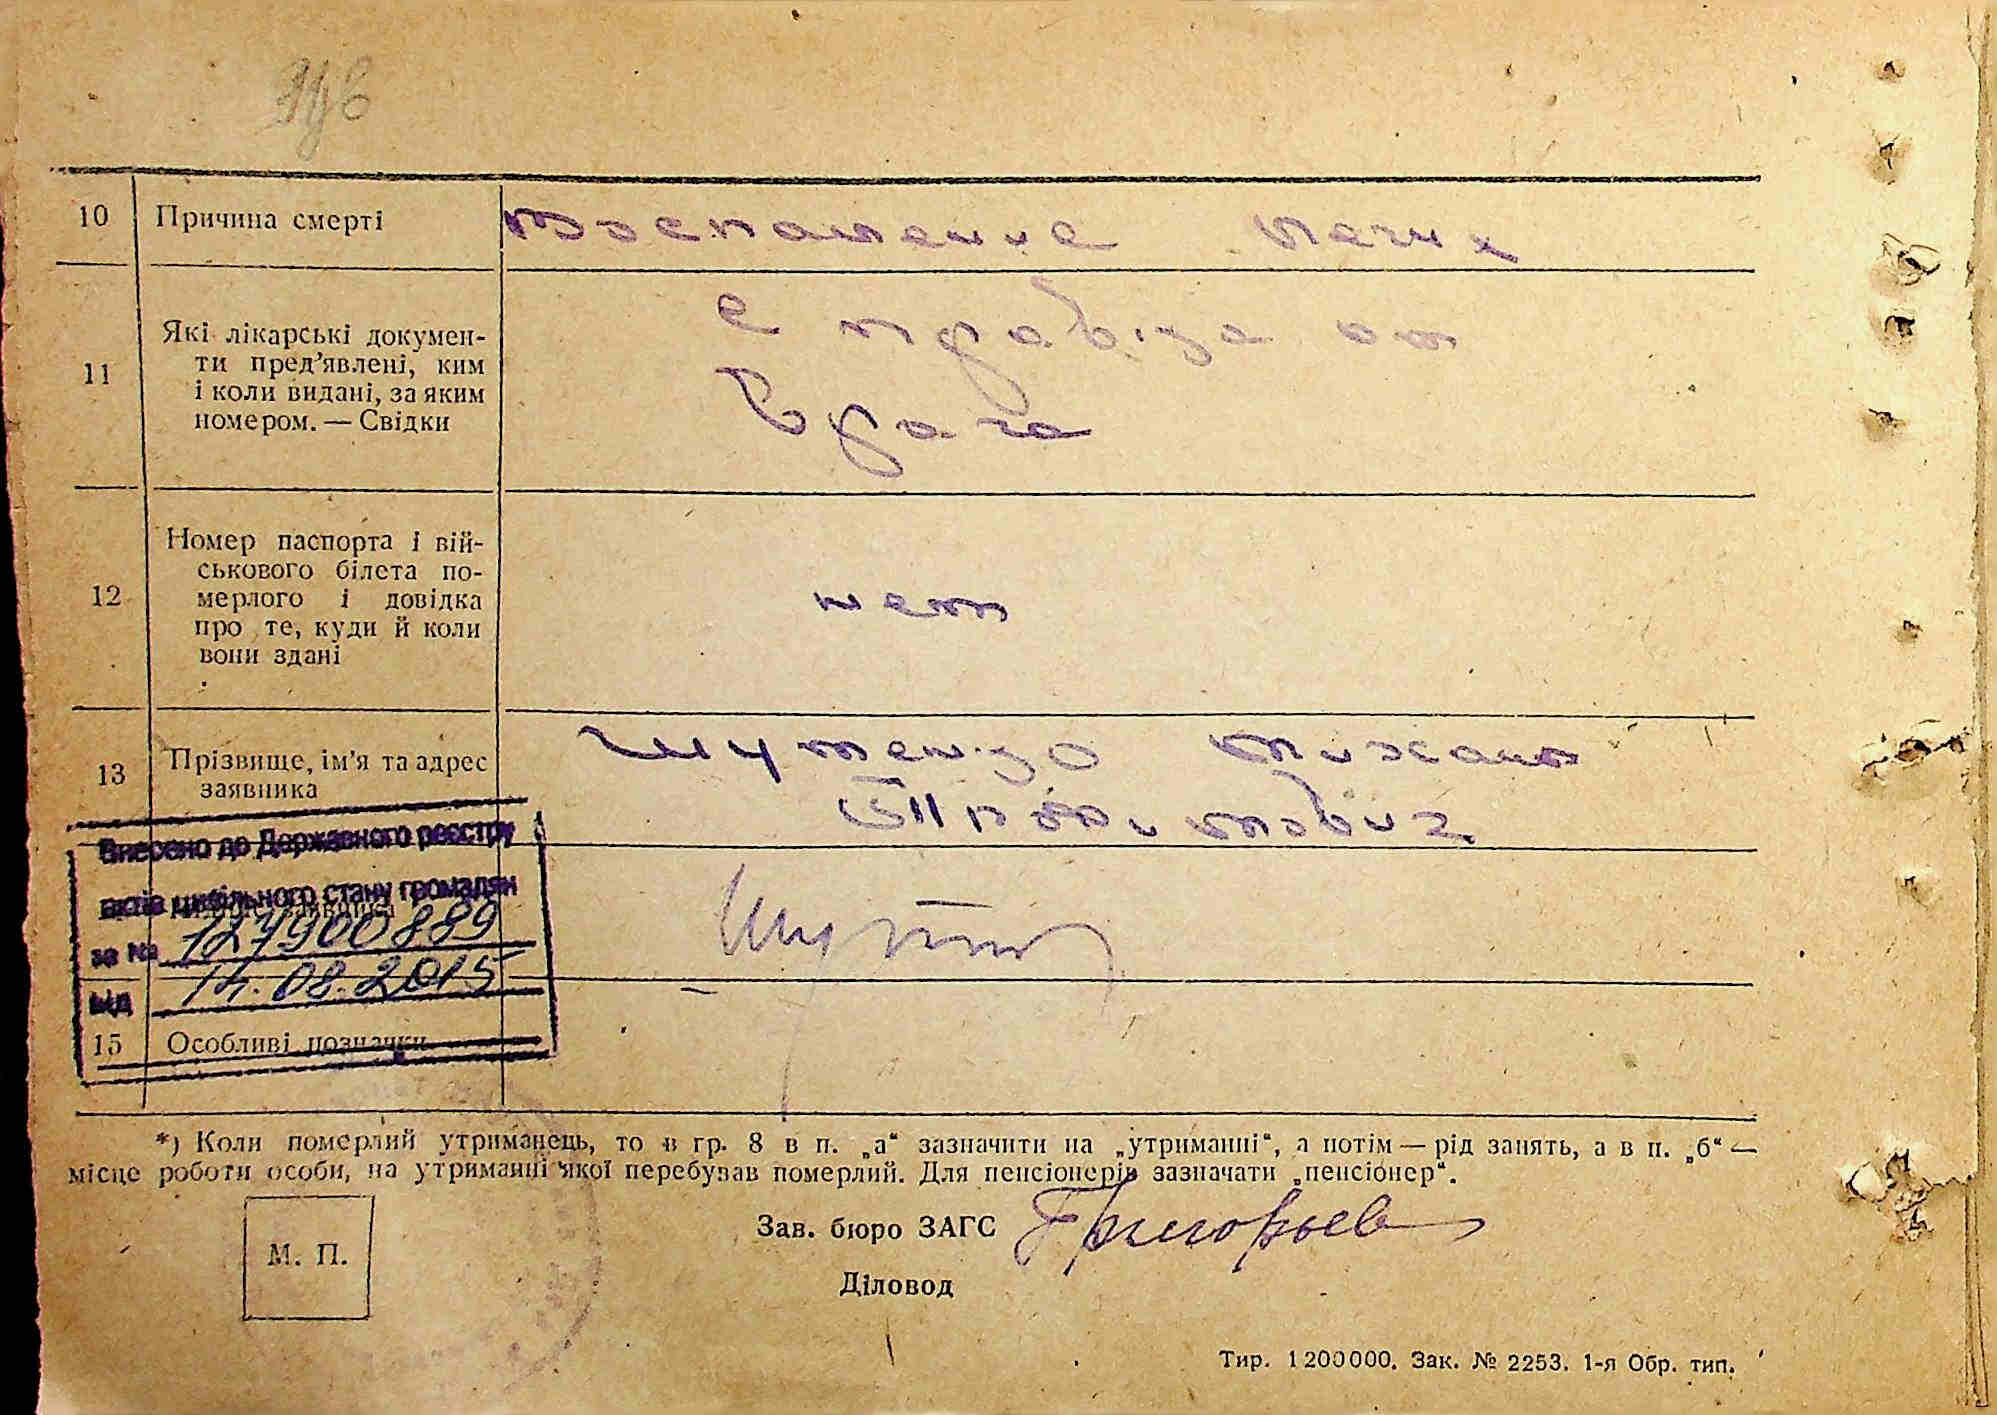 10 Причина смерті воспаление легких
11 Які лікарські документи пред’явлені, ким
і коли видані, за яким
номером. — Свідки
справка от
врача
12 Номер паспорта і військового білета померлого і довідка
про те, куди й коли
вони здані
нет
13 Прізвище, ім'я та адрес
заявника
Шутенко Михаил
Внесено до Державного реєстру
актів цивільного стану громадян
за № 127900889
від 14.08.2015
15 Особливі позначки
*) Коли померлий утриманець, то в гр. 8 в п. „а“ зазначити на „утриманні“, а потім — рід занять, а в п. „б“ —
місце роботи особи, на утриманні якої перебував померлий. Для пенсіонерів зазначати „пенсіонер“.
Зав. бюро ЗАГС Григорьев
М. П.
Діловод
Тир. 1200000. Зак. № 2253. 1-я Обр. тип.